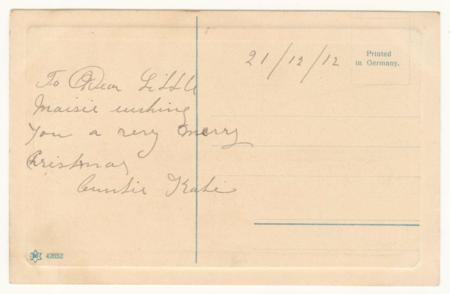 21/12/12
Printed
in Germany.
To Dear Little
Maisie wishing
you a very merry
Christmas
Auntie Katie
42652